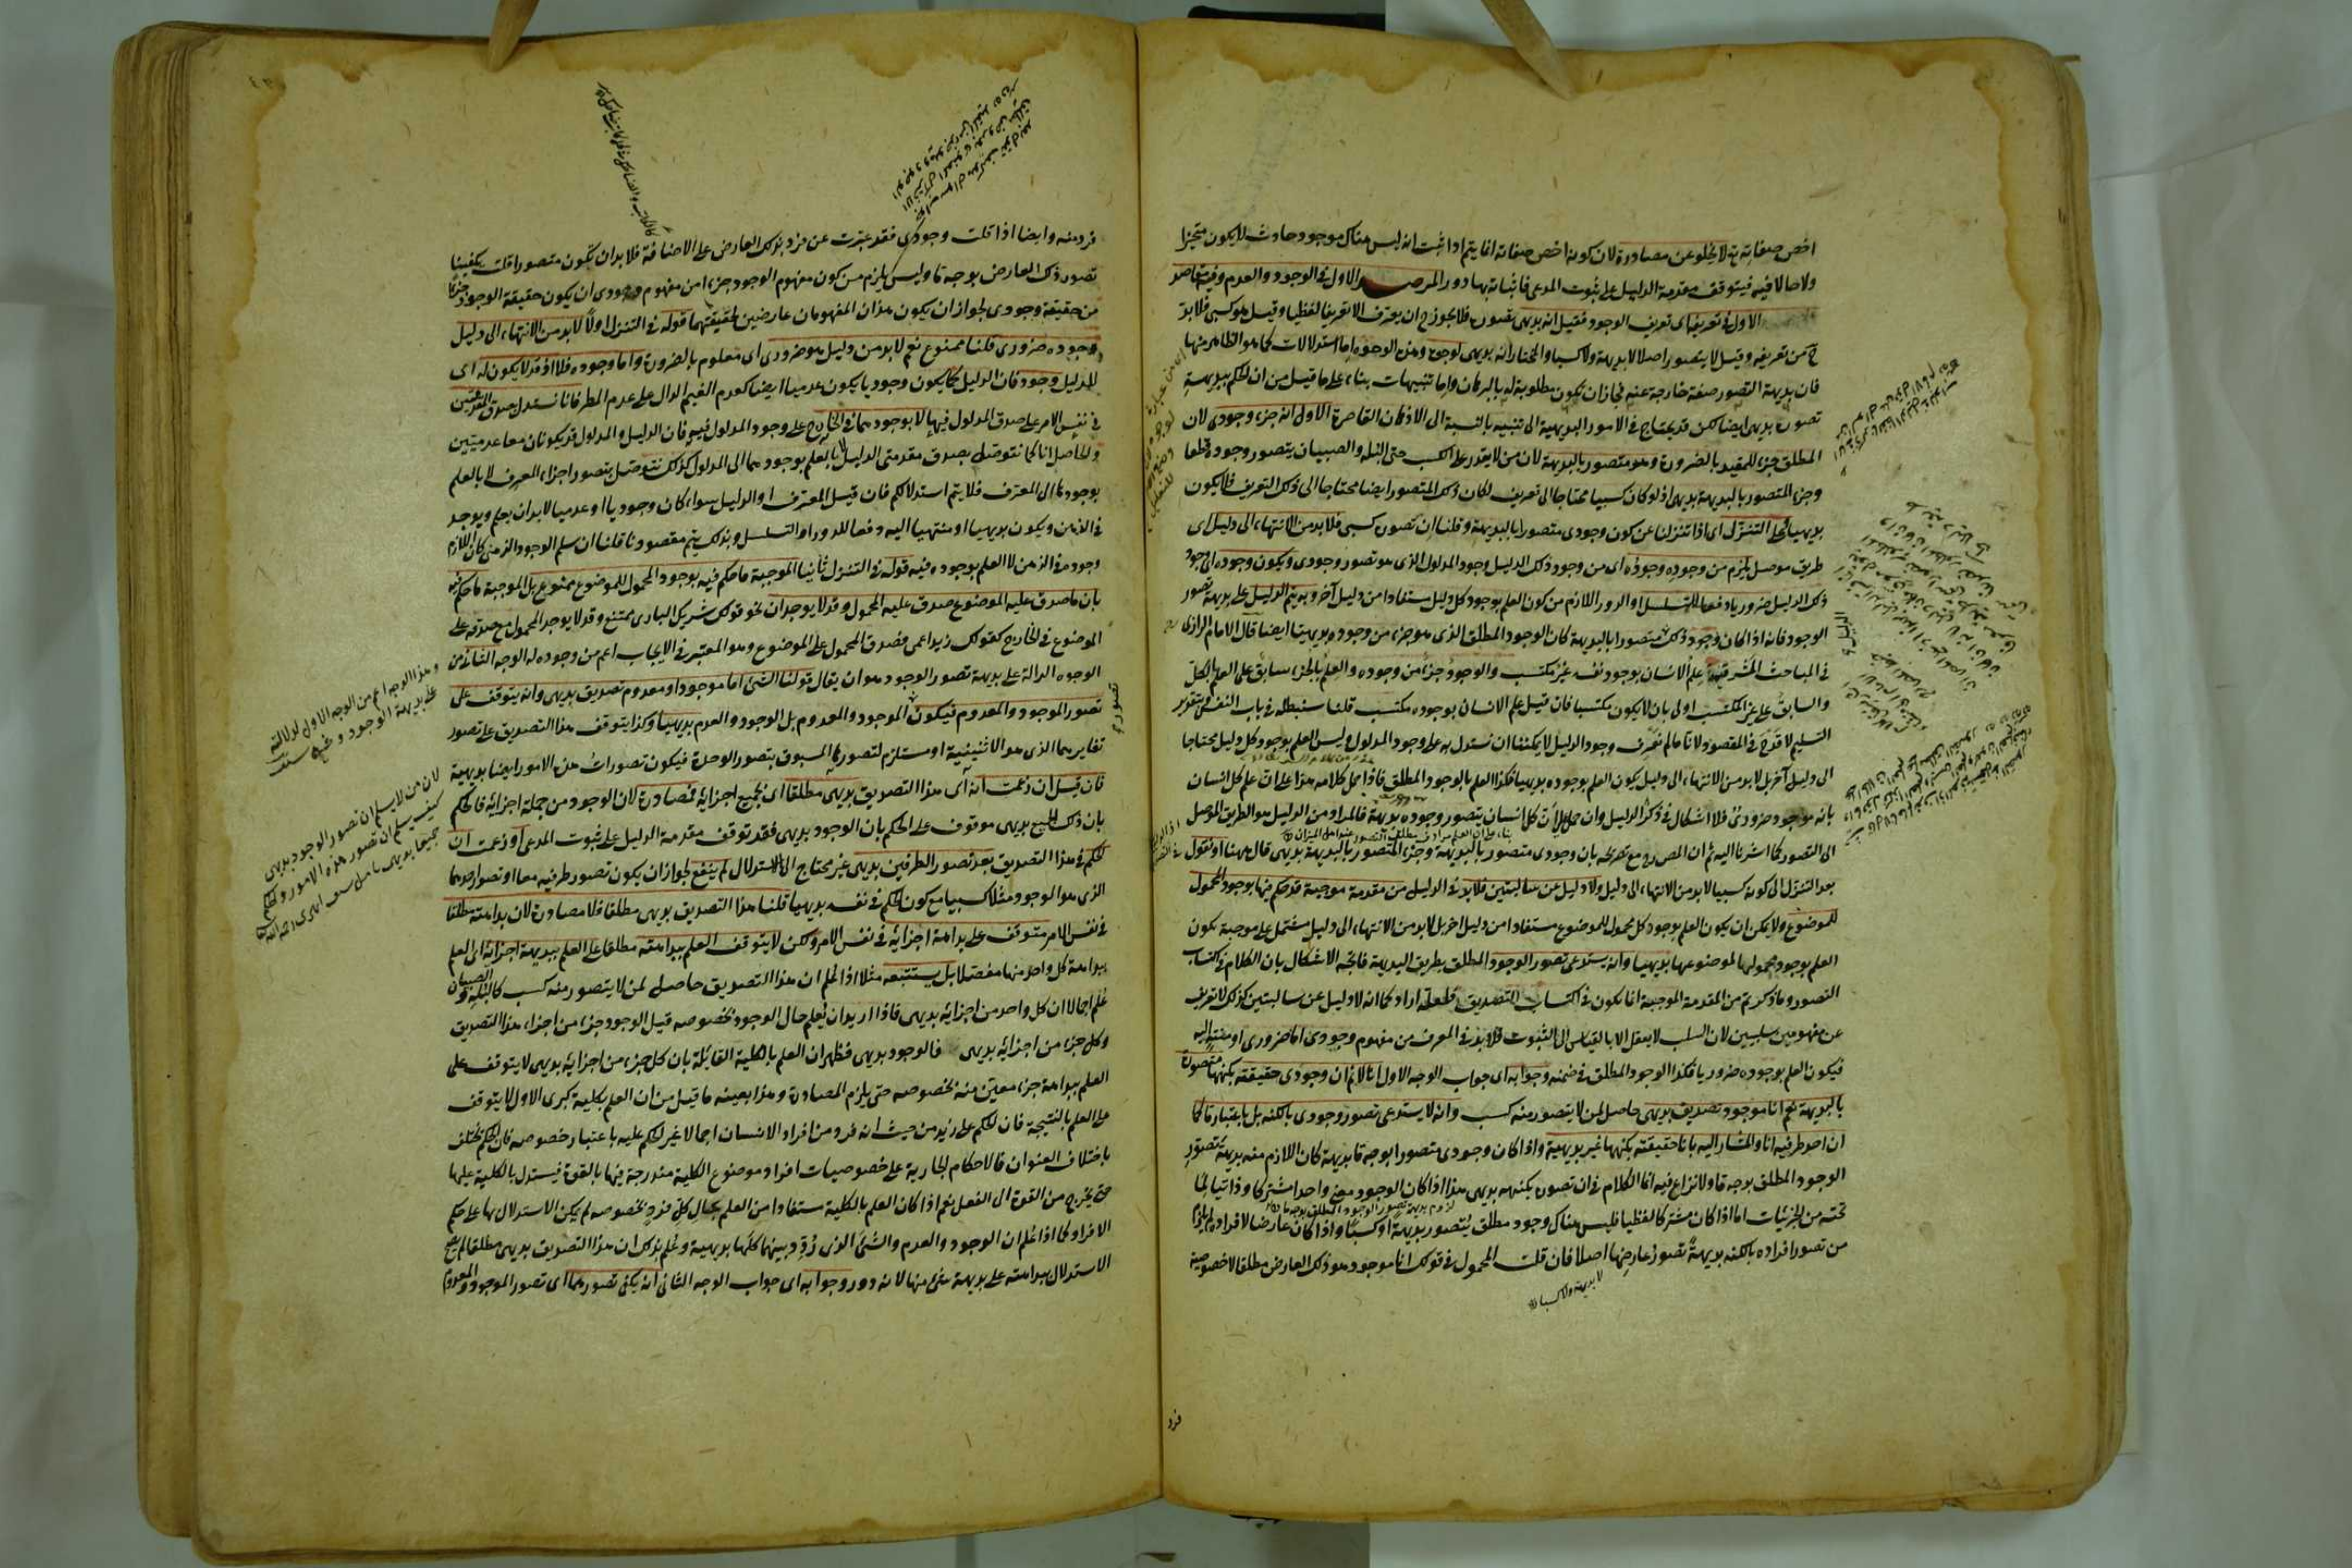 اخص صفاته تم لا يخلو عن مصادرة لان كونه اخص صفاته انما يتم اذا ثبت انه ليس هناك موجود حادث لا يكون متحيزا
ولا حالا فيه فيتوقف مقدمة الدليل على ثبوت المدعى فاثباته بها دور المرصد الاول في الوجود والعدم وفيه مقاصد
الاول في تعريفه اى تعريف الوجود فقيل انه بديهى تصوره فلا يجوز ح ان يعرف الا تعريفا لفظيا وقيل هو كسبى فلا بد
ح من تعريفه وقيل لا يتصور اصلا لا بديهة ولا كسبا والمختار انه بديهى لوجوه وهذه الوجوه اما استدلالات كما هو الظاهر منها
فان بديهة التصور صفة خارجة عنه فجاز ان يكون مطلوبة له بالبرهان واما تنبيهات بناء على ما قيل من ان الحكم ببديهة
تصوره بديهى ايضا لكن قد يحتاج في الامور البديهية الى تنبيه بالنسبة الى الاذهان القاصرة الاول انه جزء وجودى لان
المطلق جزء للمقيد بالضرورة وهو متصور بالبديهة لان من لا يقدر على الكسب حتى البله والصبيان يتصور وجوده قطعا
وجزء المتصور بالبديهة بديهى اذ لو كان كسبيا محتاجا الى تعريف لكان ذلك المتصور ايضا محتاجا الى ذلك التعريف فلا يكون
بديهيا على التنزل اى اذا تنزلنا عن كون وجودى متصورا بالبديهة وقلنا ان تصوره كسبى فلا بد من الانتهاء الى دليل اى
طريق موصل يلزم من وجوده وجوده اى من وجود ذلك الدليل وجود المدلول الذى هو تصور وجودى ويكون وجوده اى وجود
ذلك الدليل ضروريا دفعا للتسلسل او الدور اللازم من كون العلم بوجود كل دليل مستفادا من دليل آخر وبه يتم الدليل على بديهة تصور
الوجود فانه اذا كان وجود ذلك متصورا بالبديهة كان الوجود المطلق الذى هو جزء من وجوده بديهيا ايضا قال الامام الرازى
في المباحث المشرقية علم الانسان بوجود نفسه غير مكتسب والوجود جزء من وجوده والعلم بالجزء سابق على العلم بالكل
والسابق على غير المكتسب اولى بان لا يكون مكتسبا فان قيل علم الانسان بوجوده مكتسب قلنا سنبطله في باب النفس وبتقدير
التسليم لا قدح في المقصود لانا ما لم نعرف وجود الدليل لا يمكننا ان نستدل به على وجود المدلول وليس العلم بوجود كل دليل محتاجا
الى دليل آخر بل لا بد من الانتهاء الى دليل يكون العلم بوجوده بديهيا فكذا العلم بالوجود المطلق فاذا حمل كلامه هذا على ان علم كل انسان
بانه موجود ضرورى فلا اشكال في ذكر الدليل وان حمل على ان كل انسان يتصور وجوده بديهة فالمراد من الدليل هو الطريق الموصل
الى التصور كما اشرنا اليه ثم ان المص رح مع تصريحه بان وجودى متصور بالبديهة وجزء المتصور بالبديهة بديهى قال ههنا او نقول
بعد التنزل الى كونه كسبيا لا بد من الانتهاء الى دليل ولا دليل عن سالبتين فلا بد في الدليل من مقدمة موجبة قد حكم فيها بوجود المحمول
للموضوع ولا يمكن ان يكون العلم بوجود كل محمول للموضوع مستفادا من دليل اخر بل لا بد من الانتهاء الى دليل مشتمل على موجبة يكون
العلم بوجود محمولها لموضوعها بديهيا وانه يستدعى تصور الوجود المطلق بطريق البديهة فاتجه الاشكال بان الكلام في اكتساب
التصور وما ذكرتم من المقدمة الموجبة انما يكون في اكتساب التصديق فلعله اراد كما انه لا دليل عن سالبتين كذلك لا تعريف
عن مفهومين سلبيين لان السلب لا يعقل الا بالقياس الى الثبوت فلا بد في المعرف من مفهوم وجودى اما ضرورى او منته اليه
فيكون العلم بوجوده ضروريا فكذا الوجود المطلق في ضمنه وجوابه اى جواب الوجه الاول انا لا نم ان وجودى حقيقته بكنهها متصورة
بالبديهة نعم انا موجود تصديق بديهى حاصل لمن لا يتصور منه كسب وانه لا يستدعى تصور وجودى بالكنه بل باعتبار ما كما
ان احد طرفيه انا والمشار اليه بانا حقيقته بكنهها غير بديهية واذا كان وجودى متصورا بوجه ما بديهة كان اللازم منه بديهة تصور
الوجود المطلق بوجه ما ولا نزاع فيه انما الكلام في ان تصوره بكنهه بديهى هذا اذا كان الوجود معنى واحدا مشتركا وذاتيا لما
تحته من الجزئيات اما اذا كان مشتركا لفظيا فليس هناك وجود مطلق يتصور بديهة او كسبا واذا كان عارضا لافراده لم يلزم
من تصور افراده بالكنه بديهة تصور عارضها اصلا فان قلت المحمول في قولك انا موجود هو ذلك العارض مطلقا لا خصوصية
لا بديهة ولا كسبا
فرد
فرد منه وايضا اذا قلت وجودى فقد عبرت عن فرد بذلك العارض على الاضافة فلا بد ان يكون متصورا قلت يكفينا
تصور ذلك العارض بوجه ما وليس يلزم من كون مفهوم الوجود جزءا من مفهوم وجودى ان يكون حقيقة الوجود جزءا
من حقيقة وجودى لجواز ان يكون هذان المفهومان عارضين لحقيقتهما قوله في التنزل اولا لا بد من الانتهاء الى دليل
وجوده ضرورى قلنا ممنوع نعم لا بد من دليل هو ضرورى اى معلوم بالضرورة واما وجوده فلا اذ قد لا يكون له اى
للدليل وجود فان الدليل كما يكون وجوديا يكون عدميا ايضا كعدم الغيم الدال على عدم المطر فانا نستدل بصدق المقدمتين
في نفس الامر على صدق المدلول فيها لا بوجودهما في الخارج على وجود المدلول فيه فان الدليل والمدلول قد يكونان معا عدميين
والحاصل انا كما نتوصل بصدق مقدمتى الدليل لا بالعلم بوجودهما الى المدلول كذلك نتوصل بتصور اجزاء المعرف لا بالعلم
بوجودها الى المعرف فلا يتم استدلالكم فان قيل المعرف او الدليل سواء كان وجوديا او عدميا لا بد ان يعلم ويوجد
في الذهن ويكون بديهيا او منتهيا اليه دفعا للدور او التسلسل وبذلك يتم مقصودنا قلنا ان سلم الوجود الذهنى كان اللازم
وجوده في الذهن لا العلم بوجوده فيه قوله في التنزل ثانيا الموجبة ما حكم فيه بوجود المحمول للموضوع ممنوع بل الموجبة ما حكم فيه
بان ما صدق عليه الموضوع صدق عليه المحمول وقد لا يوجدان نحو قولك شريك البارى ممتنع وقد لا يوجد المحمول مع صدقه على
الموضوع في الخارج كقولك زيد اعمى فصدق المحمول على الموضوع وهو المعتبر في الايجاب اعم من وجوده له الوجه الثانى من
الوجوه الدالة على بديهة تصور الوجود هو ان يقال قولنا الشئ اما موجود او معدوم تصديق بديهى وانه يتوقف على
تصور الموجود والمعدوم فيكون الموجود والمعدوم بل الوجود والعدم بديهيا وكذا يتوقف هذا التصديق على تصور
تغايرهما الذى هو الاثنينية او مستلزم لتصورها المسبوق بتصور الوحدة فيكون تصورات هذه الامور ايضا بديهية
فان قيل ان زعمت انه اى هذا التصديق بديهى مطلقا اى بجميع اجزائه فمصادرة لان الوجود من جملة اجزائه فالحكم
بان ذلك الجميع بديهى موقوف على الحكم بان الوجود بديهى فقد توقف مقدمة الدليل على ثبوت المدعى او زعمت ان
الحكم في هذا التصديق بعد تصور الطرفين بديهى غير محتاج الى الاستدلال لم ينفع لجواز ان يكون تصور طرفيه معا او تصور احدهما
الذى هو الوجود مثلا كسبيا مع كون الحكم في نفسه بديهيا قلنا هذا التصديق بديهى مطلقا فلا مصادرة لان بداهته مطلقا
في نفس الامر متوقف على بداهة اجزائه في نفس الامر ولكن لا يتوقف العلم ببداهته مطلقا على العلم ببديهة اجزائه اى العلم
ببداهة كل واحد منها مفصلا بل يستتبعه مثلا اذا علم ان هذا التصديق حاصل لمن لا يتصور منه كسب كالبله والصبيان
علم اجمالا ان كل واحد من اجزائه بديهى فاذا اريد ان يعلم حال الوجود بخصوصه قيل الوجود جزء من اجزاء هذا التصديق
وكل جزء من اجزائه بديهى فالوجود بديهى فظهر ان العلم بالكلية القائلة بان كل جزء من اجزائه بديهى لا يتوقف على
العلم ببداهة جزء معين منه بخصوصه حتى يلزم المصادرة وهذا بعينه ما قيل من ان العلم بكلية كبرى الاول لا يتوقف
على العلم بالنتيجة فان الحكم على زيد من حيث انه فرد من افراد الانسان اجمالا غير الحكم عليه باعتبار خصوصه فان الحكم يختلف
باختلاف العنوان فالاحكام الجارية على خصوصيات افراد موضوع الكلية مندرجة فيها بالقوة فيستدل بالكلية عليها
حتى يخرج من القوة الى الفعل نعم اذا كان العلم بالكلية مستفادا من العلم بحال كل فرد بخصوصه لم يكن الاستدلال بها على حكم
الافراد كما اذا علم ان الوجود والعدم والشئ الذى ردد بينهما كلها بديهية وعلم بذلك ان هذا التصديق بديهى مطلقا لم يصح
الاستدلال ببداهته على بديهة شئ منها لانه دور وجوابه اى جواب الوجه الثانى انه يكفى تصورهما اى تصور الموجود والمعدوم
وهذا الوجه اعم من الوجه الاول لدلالته
على بديهة الوجود وغيره
لان من لا يسلم ان تصور الوجود بديهى
كيف يسلم ان تصور هذه الامور والحكم
جميعا بديهى